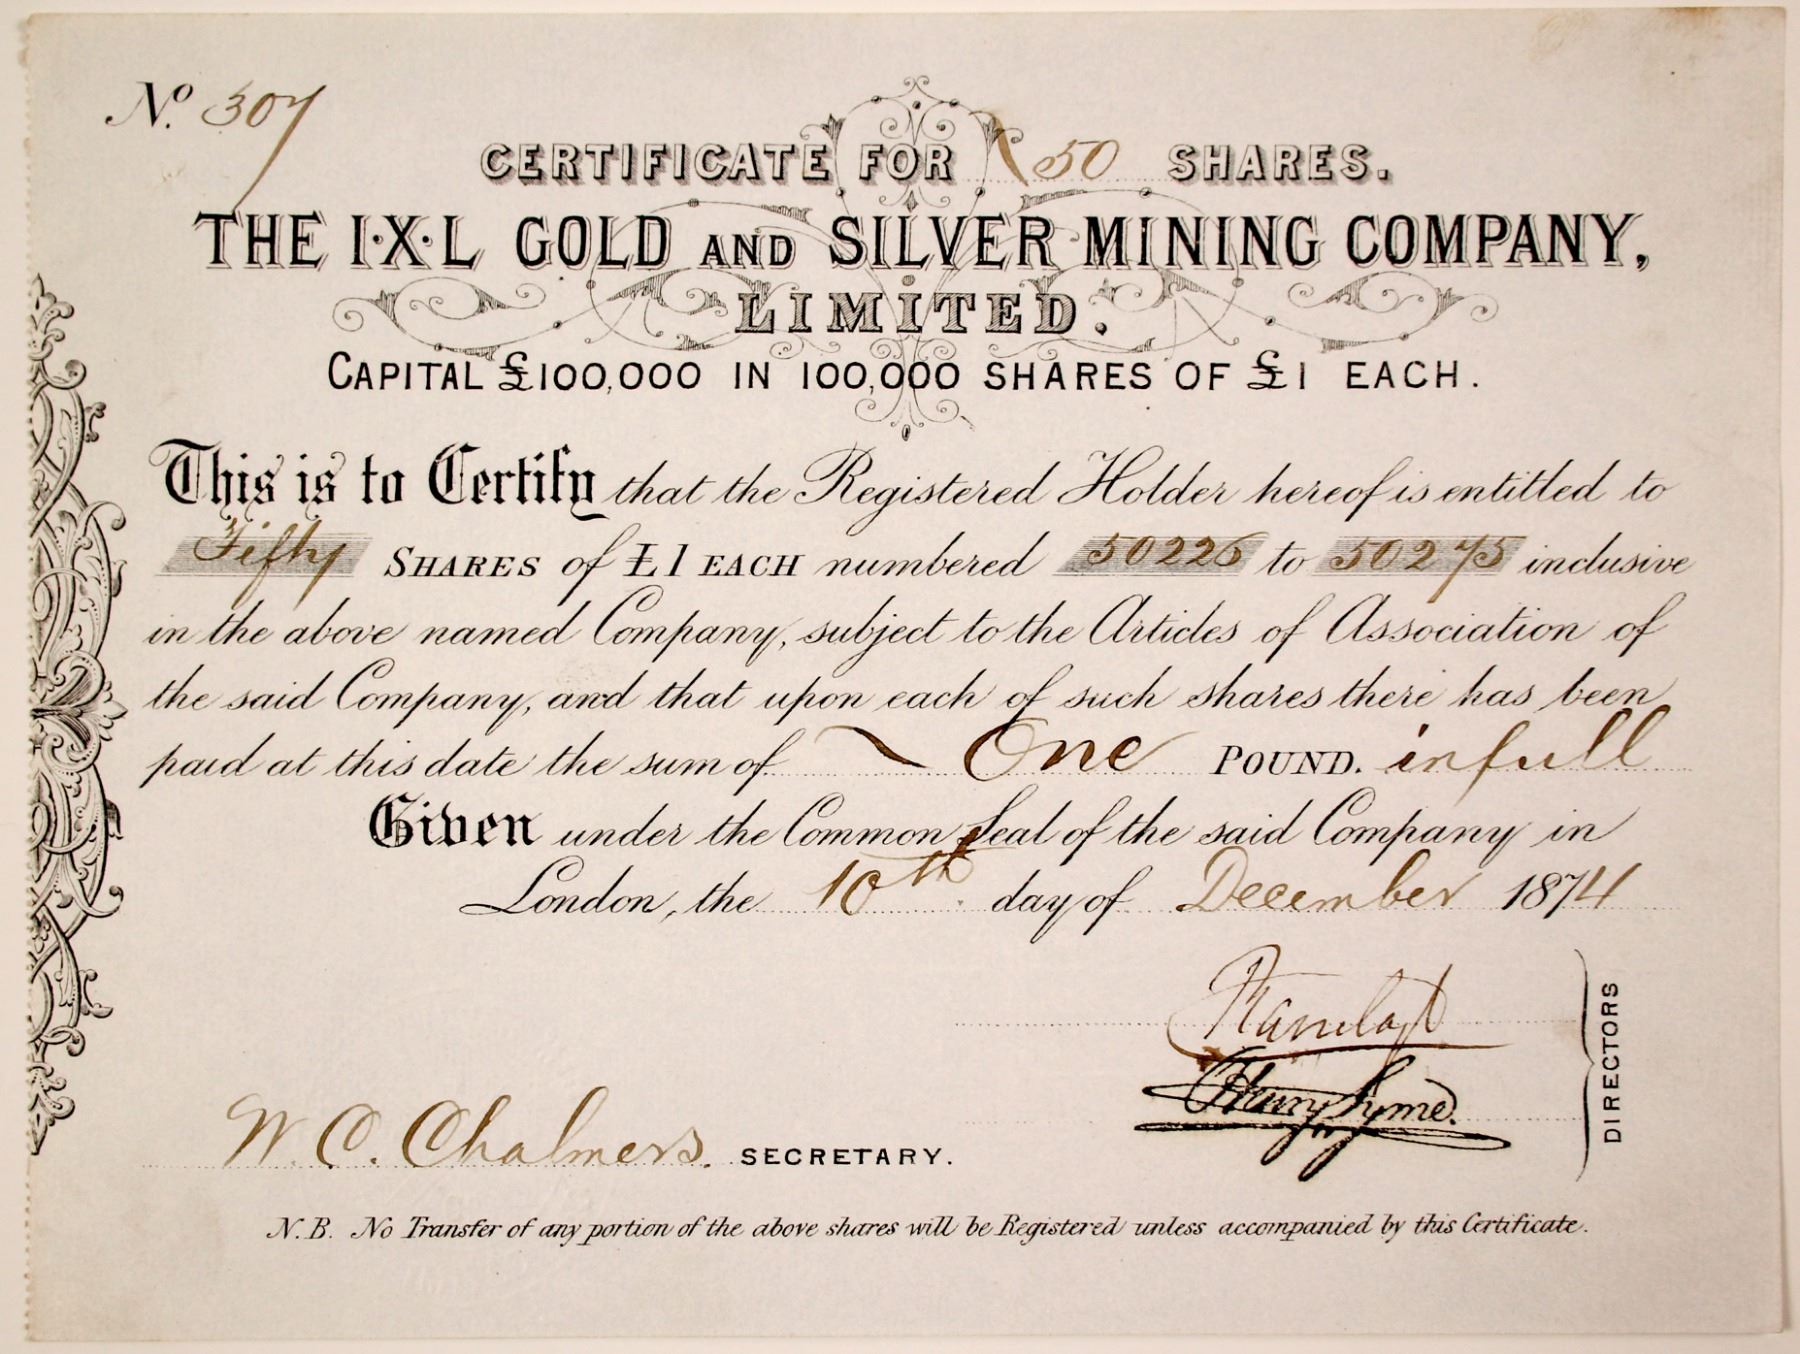 No. 307
CERTIFICATE FOR 50 SHARES.
THE I·X·L GOLD AND SILVER MINING COMPANY,
LIMITED.
CAPITAL £100,000 IN 100,000 SHARES OF £1 EACH.
This is to Certify that the Registered Holder hereof is entitled to
Fifty SHARES of £1 EACH numbered 50226 to 50275 inclusive
in the above named Company, subject to the Articles of Association of
the said Company, and that upon each of such shares there has been
paid at this date the sum of One POUND. in full
Given under the Common Seal of the said Company in
London, the 10th day of December 1874
Harry Syme.
DIRECTORS
W. C. Chalmers. SECRETARY.
N.B. No Transfer of any portion of the above shares will be Registered unless accompanied by this Certificate.